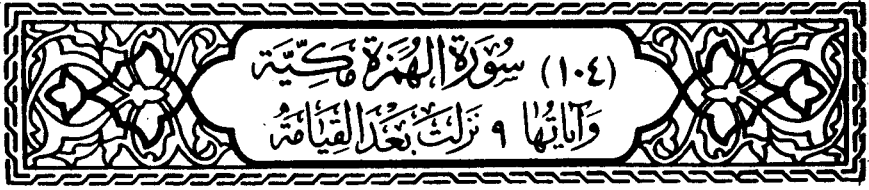 (١٠٤) سُورَةُ الهُمَزَة مَكِيَّة
وَآيَاتُهَا ٩ نَزَلَتْ بَعْدَ القِيَامَةِ